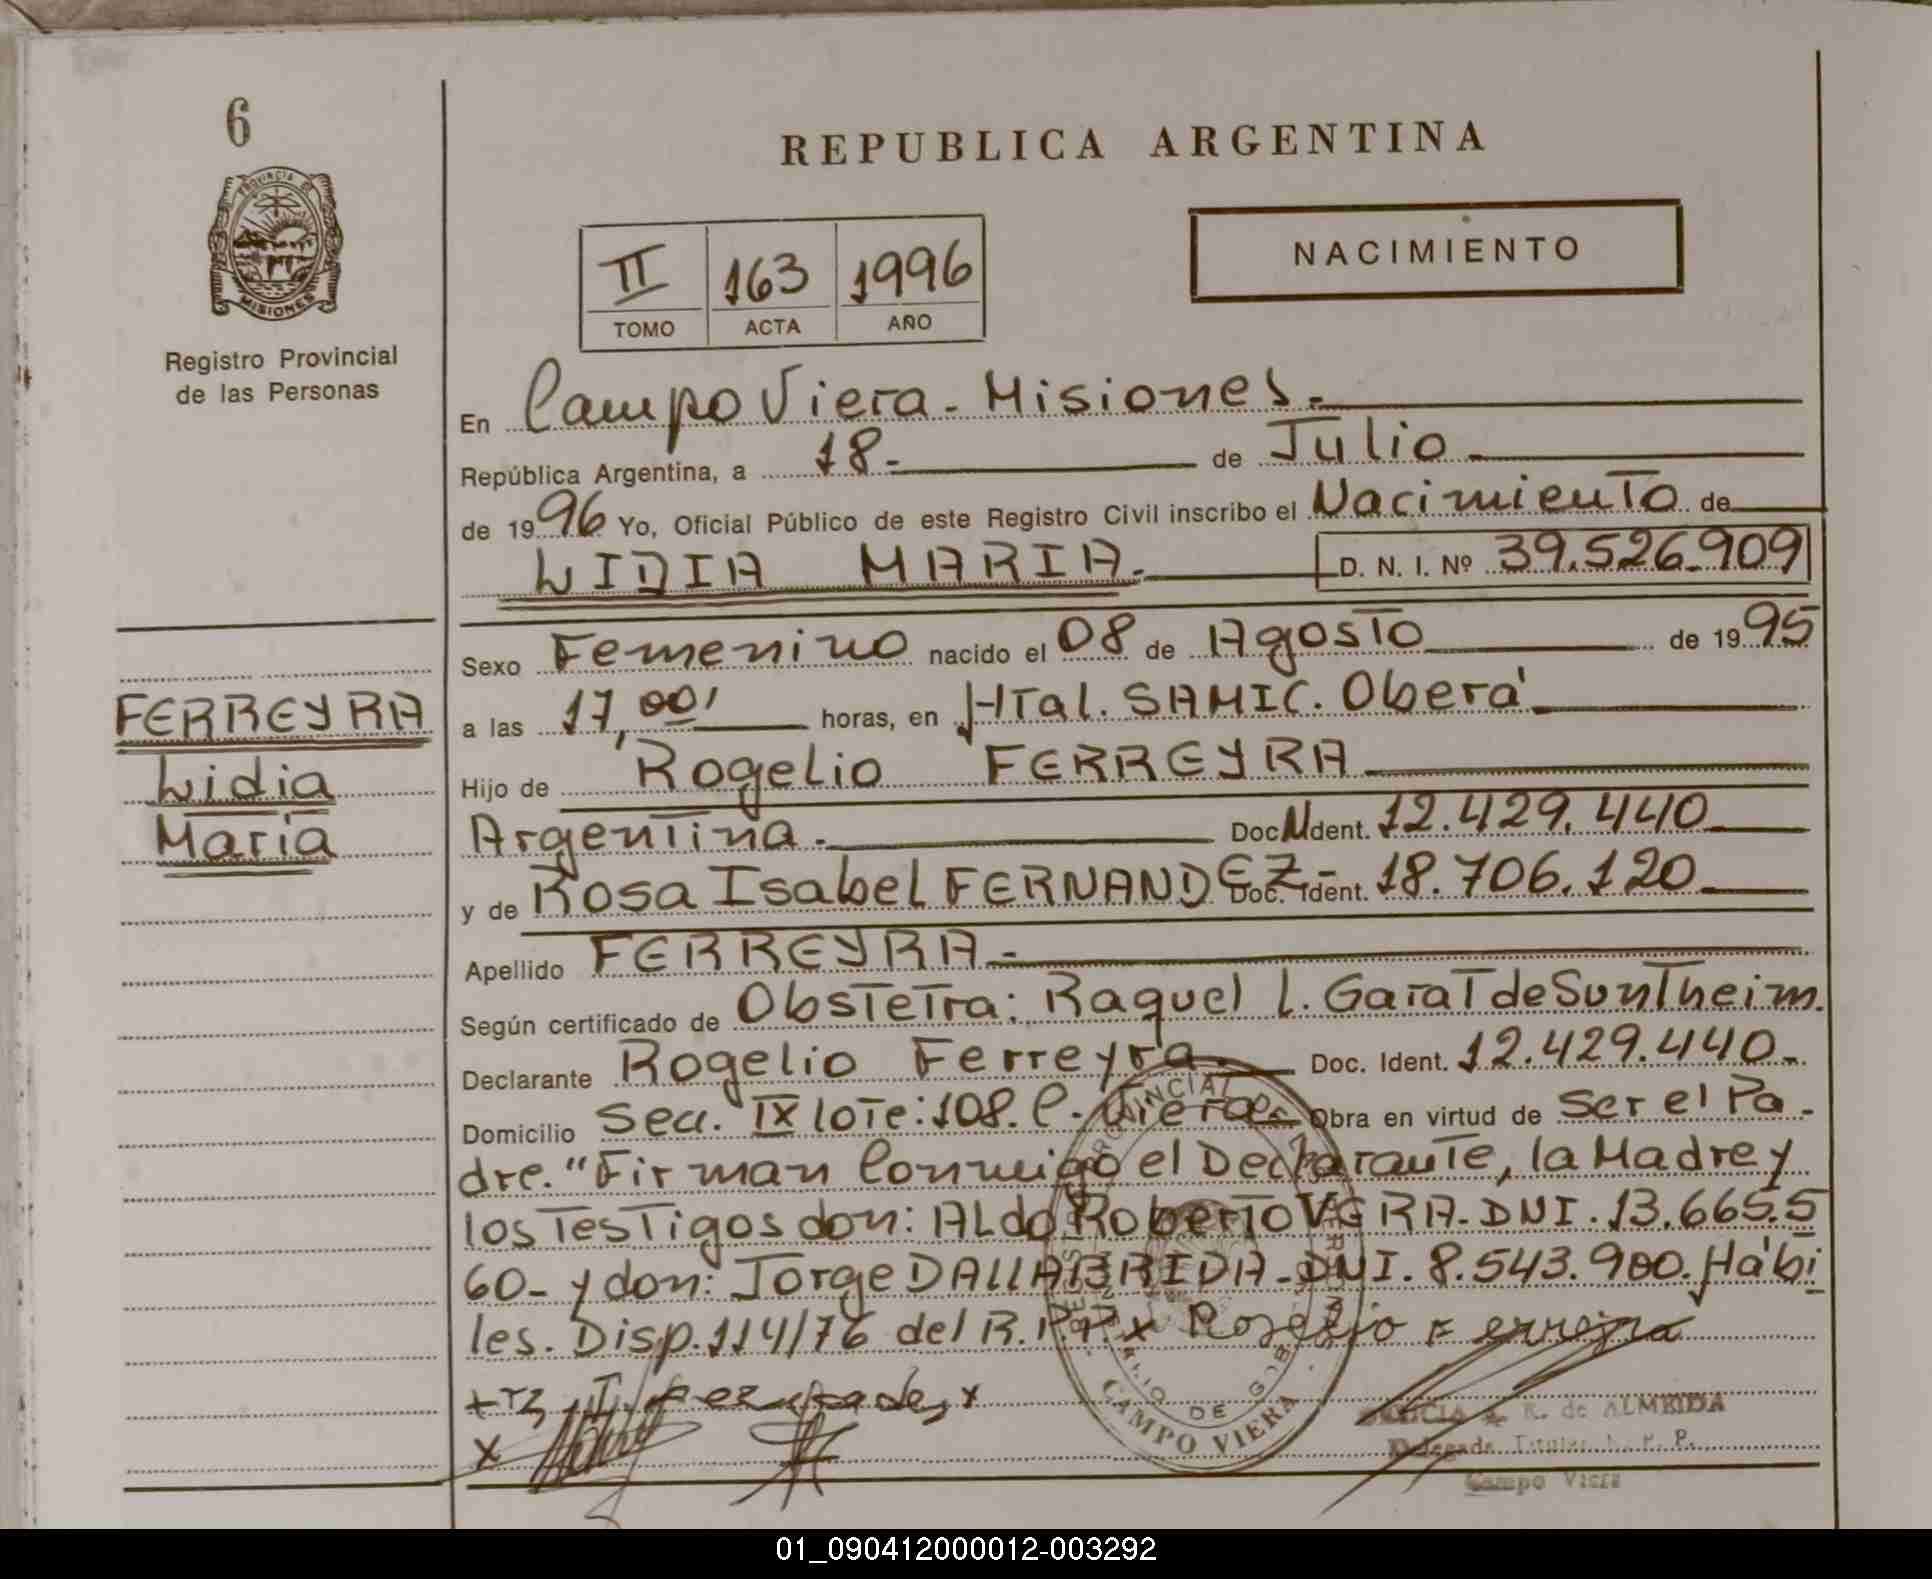 6
PROVINCIA DE
MISIONES
Registro Provincial
de las Personas
FERREYRA
Lidia
María
REPUBLICA ARGENTINA
NACIMIENTO
II 163 1996
TOMO ACTA AÑO
En Campo Viera - Misiones.-
República Argentina, a 18.- de Julio.-
de 1996 Yo, Oficial Público de este Registro Civil inscribo el Nacimiento de
LIDIA MARIA.- D. N. I. Nº 39.526.909
Sexo Femenino nacido el 08 de Agosto de 1995
a las 17,00' horas, en Htal. SAMIC. Oberá.
Hijo de Rogelio FERREYRA
Argentina.- Doc. Ident. 12.429.440
y de Rosa Isabel FERNANDEZ- Doc. Ident. 18.706.120
Apellido FERREYRA.-
Según certificado de Obstetra: Raquel L. Garat de Suntheim.
Declarante Rogelio Ferreyra Doc. Ident. 12.429.440-
Domicilio Secc. IX lote: 108. C. Viera. Obra en virtud de Ser el Pa-
dre. "Firman Conmigo el Declarante, la Madre y
los Testigos don: Aldo Roberto VERA. DNI. 13.665.5
60- y don: Jorge DALLABRIDA. DNI. 8.543.900. Hábi
les. Disp. 114/76 del R.P.P. x Rogelio Ferreira
x
x
CAMPO VIERA
R. de ALMEIDA
Delegada Titular R. P. P.
Campo Viera
01_090412000012-003292